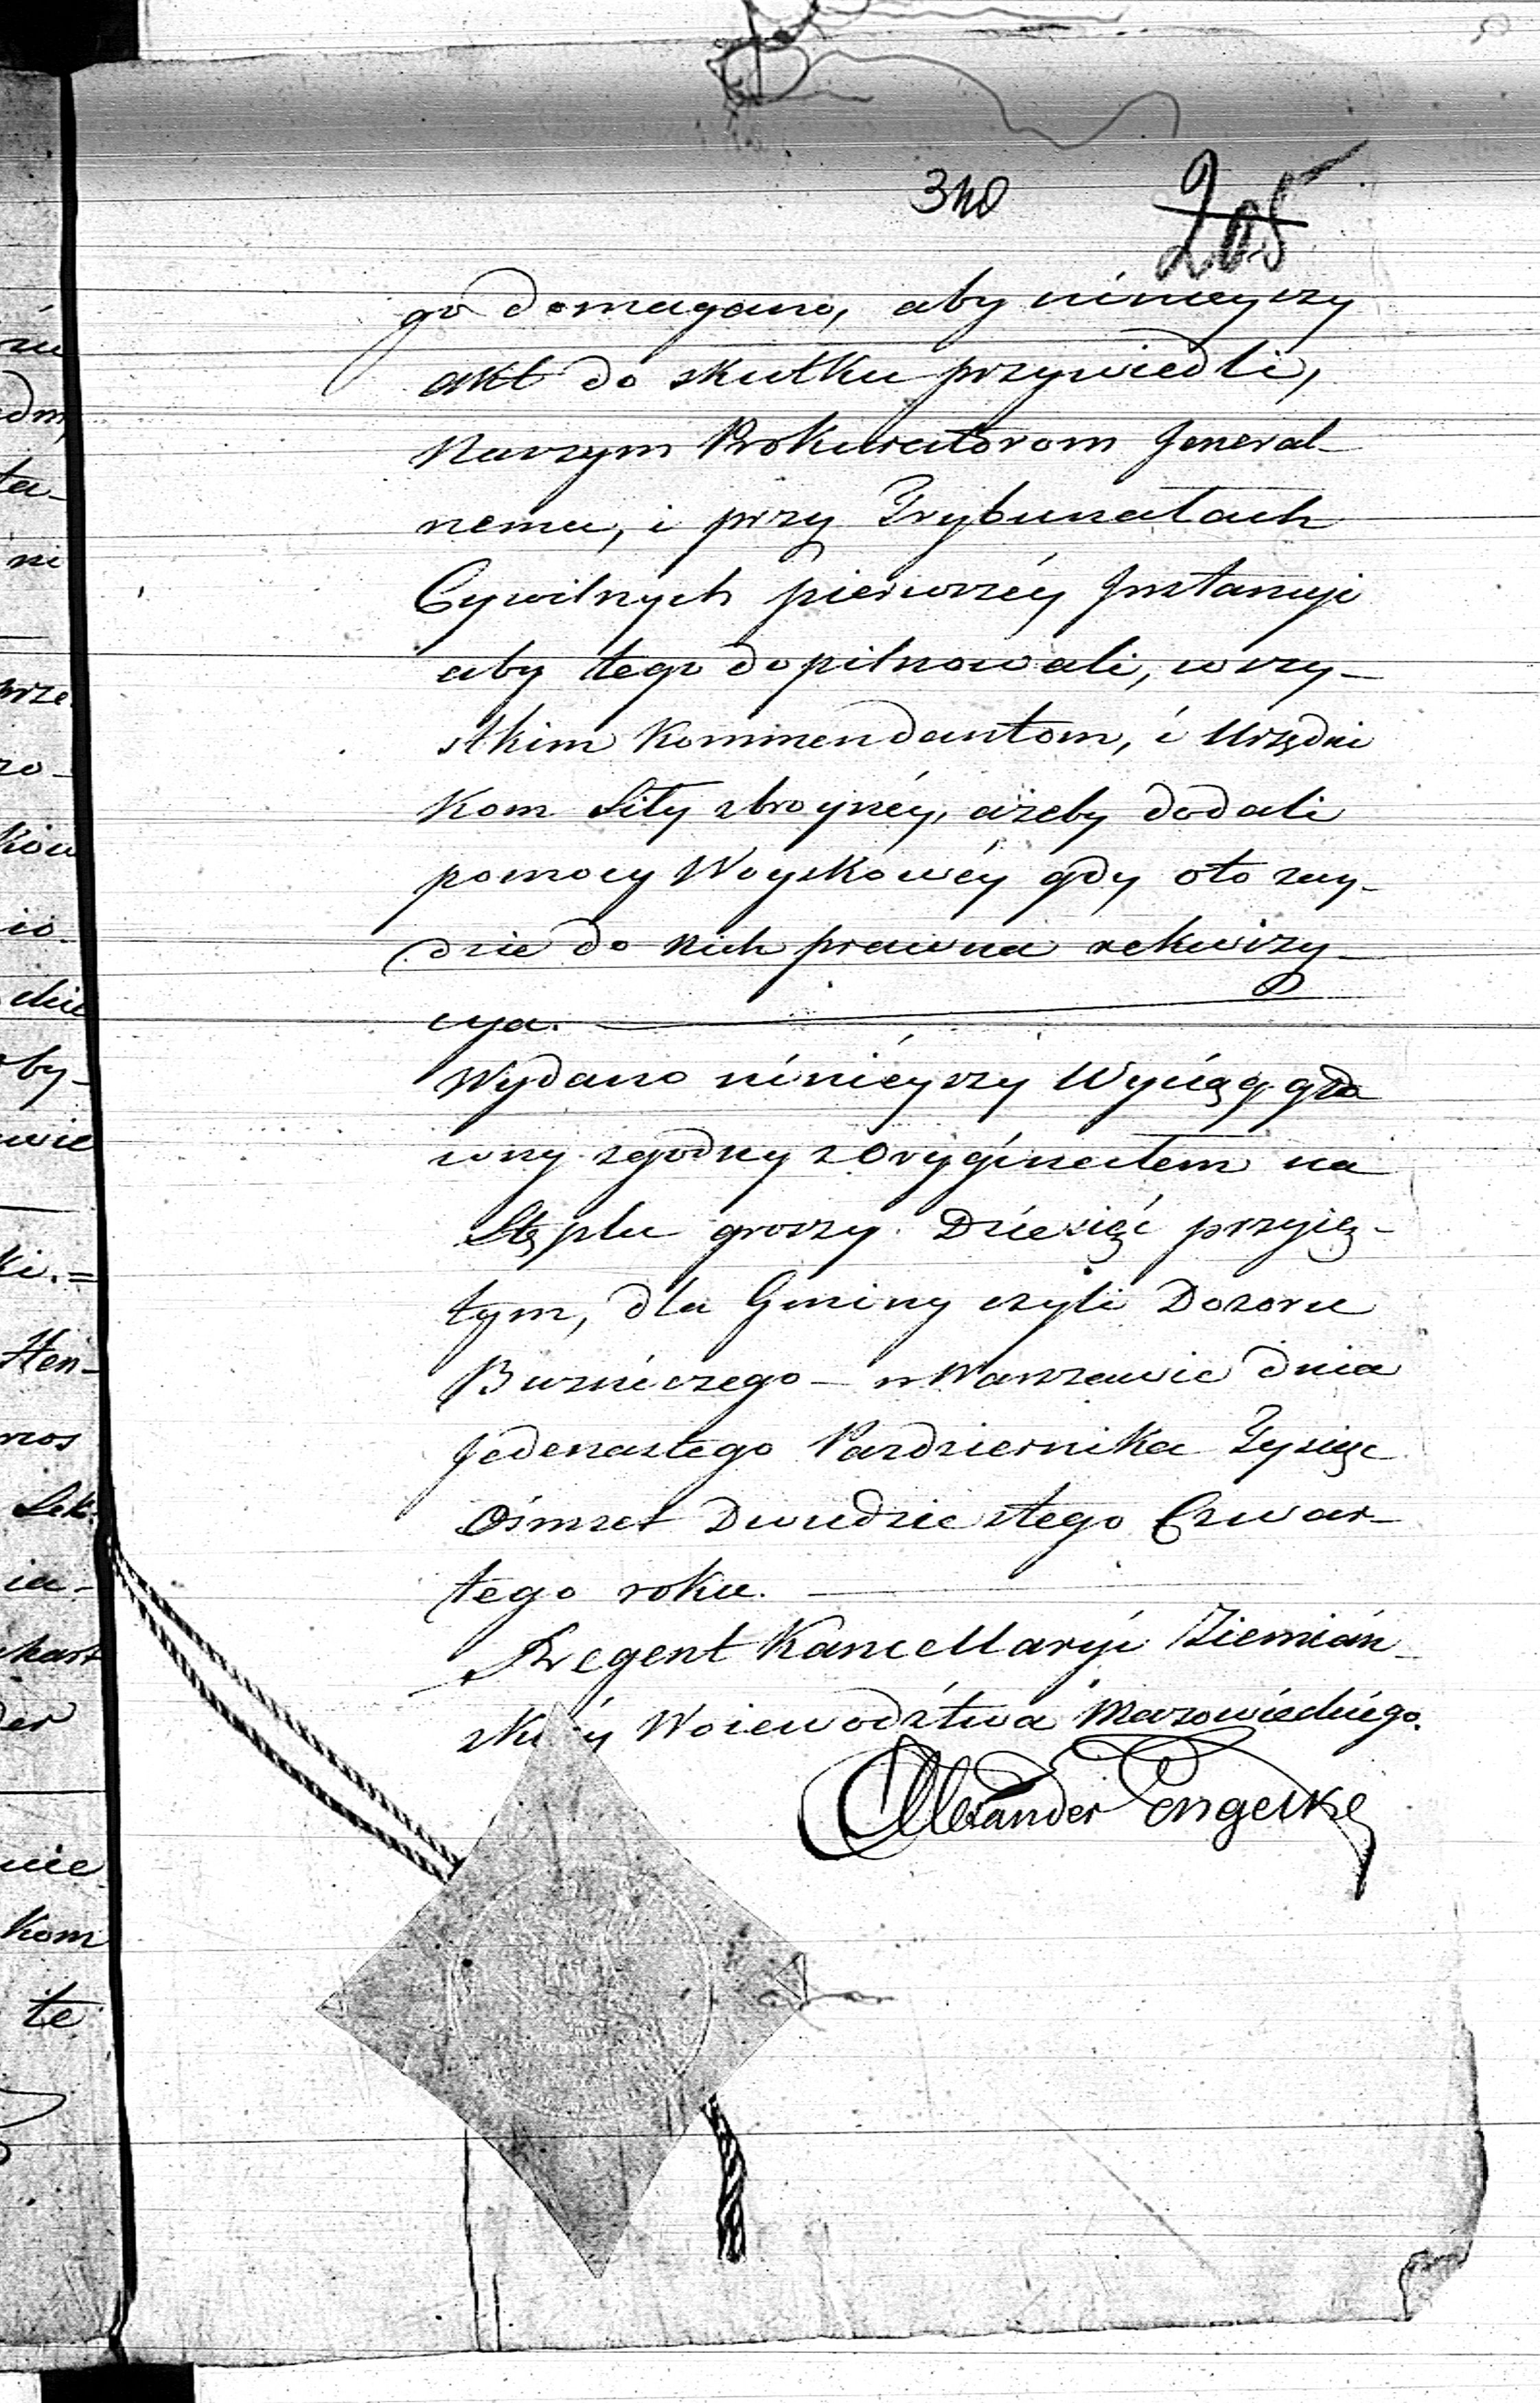 340
205
go domagano, aby ninieyszy
akt do skutku przywiedli,
Naszym Prokuratorom Jeneral-
nemu, i przy Trybunałach
Cywilnych pierwszéy Instancyi
aby tego dopilnowali, wszy-
stkim Kommendantom, i Urzędni
kom Siły zbroynéy, ażeby dodali
pomocy Woyskowéy gdy oto zay-
dzie do nich prawna rekwizy-
cya.
Wydano ninieyszy Wyciąg głó
wny zgodny z Oryginałem na
Stęplu groszy Dziesięć przyię-
tym, dla Gminy czyli Dozoru
Bużniczego – w Warszawie dnia
Jedenastego Pazdziernika Tysiąc
Ośmset Dwudziestego Czwar-
tego roku.
Regent Kancellaryi Ziemiań-
skiéy Woiewodztwa Mazowieckiego.
Alexander Engelke